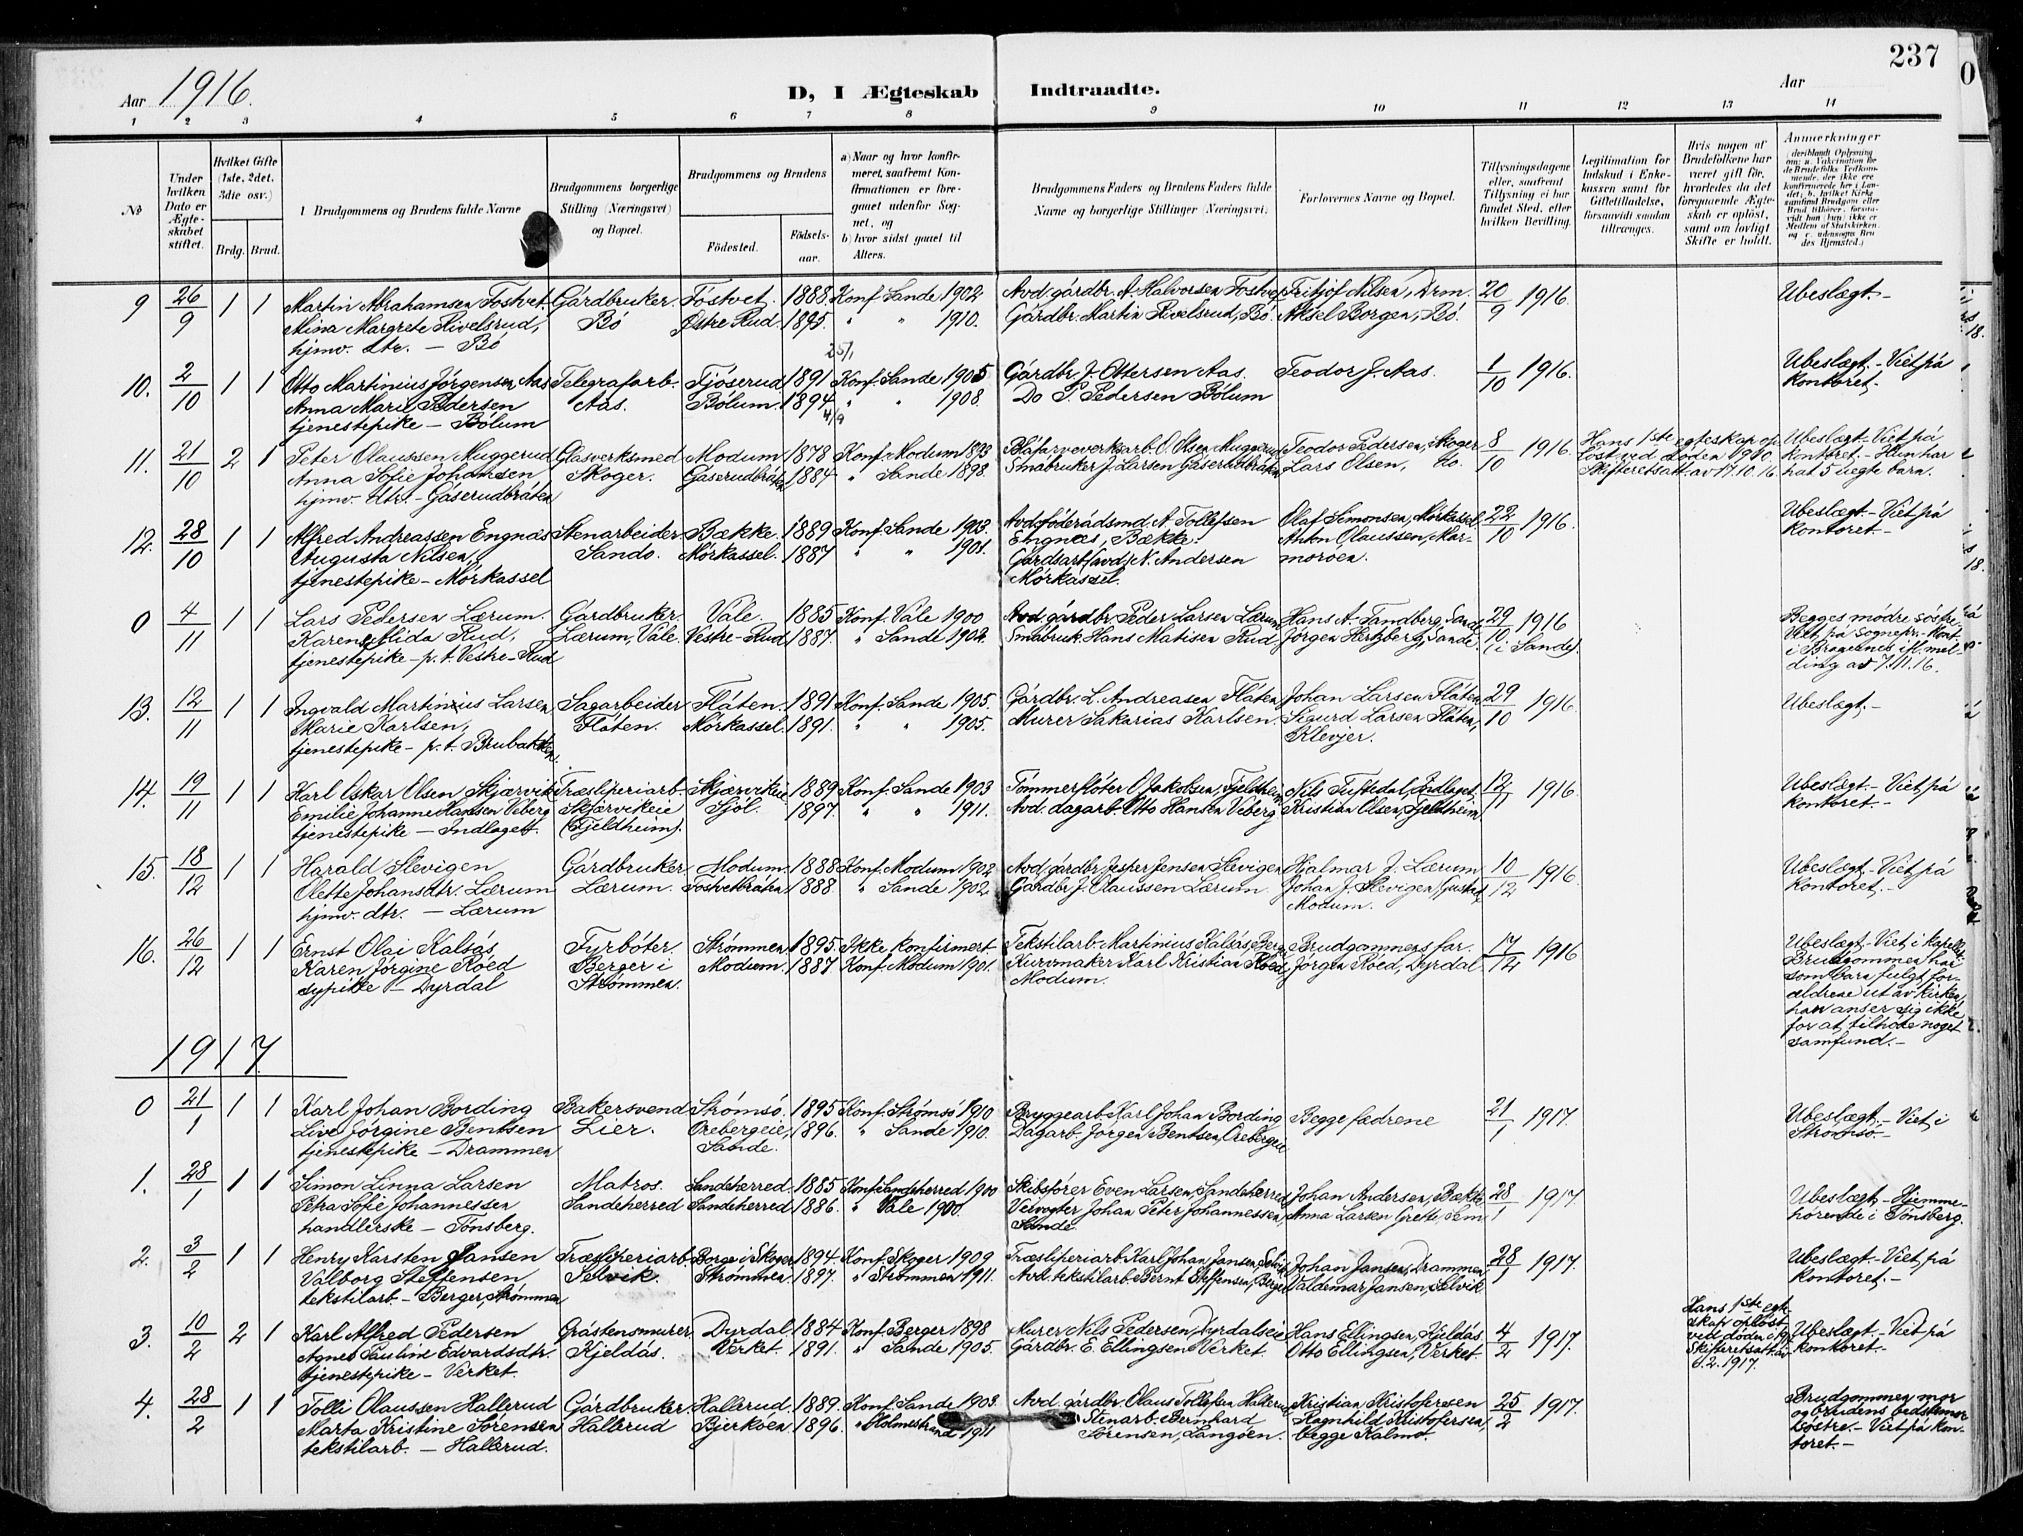 237
Aar 1916.
D, I Ægteskab Indtraadte.
Aar
1 2 3 4 5 6 7 8 9 10 11 12 13 14
No
Under hvilken Dato er Ægteskabet stiftet.
Hvilket Gifte (1ste, 2det, 3die osv.)
Brdg. Brud.
1 Brudgommens og Brudens fulde Navne
Brudgommens borgerlige Stilling (Næringsvei) og Bopæl.
Brudgommens og Brudens
Födested. Födselsaar.
a) Naar og hvor konfirmeret, saafremt Konfirmationen er foregaaet udenfor Sognet, og
b) hvor sidst gaaet til Alters.
Brudgommens Faders og Brudens Faders fulde Navne og borgerlige Stillinger (Næringsvei).
Forlovernes Navne og Bopæl.
Tillysningsdagene eller, saafremt Tillysning ei har fundet Sted, efter hvilken Bevilling.
Legitimation for Indskud i Enkekassen samt for Giftetilladelse, forsaavidt saadan tiltrænges.
Hvis nogen af Brudefolkene har været gift för, hvorledes da det foregaaende Ægteskab er oplöst, samt om lovligt Skifte er holdt.
Anmerkninger
9 26/9 1 1 Martin Abrahamsen Tostvet Gårdbruker Tostvet 1888 Konf. Sande 1902 Avd. gårdbr. A. Halvorsen Tostvet Fritjof Nilsen, Drm. 20/9 1916. Ubeslægt.-
Mina Margrete Rivelsrud, Bö Östre Rud 1895. " " 1910. Gårdbr. Martin Rivelsrud, Bö. Aksel Borgen, Bö.
hjmv. dtr. - Bö
10. 2/10 1 1 Otto Martinius Jörgensen Aas Telegrafarb. Tjöserud 25/1 1891 Konf. Sande 1905 Gårdbr. J. Ottersen Aas. Teodor J. Aas. 1/10 1916. Ubeslægt.- Viet på
Anna Marie Pedersen Aas. Bölum. 1894 4/9 " " 1908. Do P. Pedersen Bölum kontoret.-
tjenestepike - Bölum
11. 21/10 2 1 Peter Olaussen Muggerud Glasverksmed Modum 1878 Konf. Modum 1893 Blåfarveverksarb. O. Olsen Muggerud Teodor Pedersen, Skoger 8/10 1916. Hans 1ste egteskap op- Ubeslægt.- Viet på
Anna Sofie Johansen Skoger. Gåserudbråten 1884 " Sande 1898. Småbruker J. Larsen Gåserudbråten Lars Olsen, do. löst ved döden 1910. kontoret.- Hun har
hjmv. dtr. - Gåserudbråten Skifteretsatt. av 17.10.16. hat 5 uegte barn.
12. 28/10 1 1 Alfred Andreassen Engnæs Stenarbeider Bække. 1889 Konf. Sande 1903. Avd. föderådsmd. A. Tollefsen Olaf Simonsen, Mörkassel 22/10 1916. Ubeslægt.- Viet på
Augusta Nilsen, Sande. Mörkassel. 1887 " " 1901. Engnæs, Bække. Anton Olaussen, Mar- kontoret.-
tjenestepike - Mörkassel Gårdsarb. (avd.) N. Andersen moroen.
Mörkassel.
0 4/11 1 1 Lars Pedersen Lærum. Gårdbruker. Våle 1885 Konf. Våle 1900 Avd. gårdbr. Peder Larsen Lærum Hans A. Sandberg, Sande 29/10 1916 Begges mödre söstre.
Karen Alida Rud, Lærum, Våle. Vestre-Rud 1887. " Sande 1902. Småbruk. Hans Matisen Rud Jörgen Hertzberg, Sande. (i Sande). Viet på sognepr.kont.
tjenestepike - p.t. Vestre-Rud i Bragernes ifl. mel-
ding av 7.11.16.
13. 12/11 1 1 Ingvald Martinius Larsen Sagarbeider Flåten. 1891 Konf. Sande 1905. Gårdbr. L. Andreasen, Flåten Johan Larsen Flåten 29/10 1916. Ubeslægt.-
Marie Karlsen, Flåten. Mörkassel. 1891. " " 1905. Murer Sakarias Karlsen. Sigurd Larsen Flåten,
tjenestepike - p.t. Brubakken. Klevjer.
14. 19/11 1 1 Karl Oskar Olsen Skjærvik Træsliperiarb. Skjærvikeie 1889 Konf. Sande 1903 Tömmerflöter O. Jakobsen, Fjeldheim Nils Tuftedal, Indlaget 12/11 1916. Ubeslægt.- Viet på
Emilie Johanne Hansen Viberg Skjærvikeie Sjöl. 1897. " " 1911. Avd. dagarb. Otto Hansen Viberg Kristian Olsen, Fjeldheim kontoret.-
tjenestepike - Indlaget. (Fjeldheim).
15. 18/12 1 1 Harald Slevigen Gårdbruker Modum. 1888 Konf. Modum 1902 Avd. gårdbr. Jesper Jensen Slevigen Hjalmar J. Lærum 10/12 1916. Ubeslægt.- Viet på
Olette Johansdtr. Lærum Lærum. Tostvetbråten 1888 " Sande 1902. Gårdbr. J. Olaussen Lærum. Johan J. Slevigen, kontoret.-
hjmv. dtr. - Lærum Modum.
16. 26/12 1 1 Ernst Olai Kalsås Fyrböter. Strömmen 1895 Ikke konfirmert Tekstilarb. Martinius Kalsås, Berger Brudgommens far. 17/12 1916 Ubeslægt.- Viet i kapellet.
Karen Jörgine Röed Berger i Modum. 1887 Konf. Modum 1901. Kurvmaker Karl Kristian Röed, Jörgen Röed, Dyrdal Brudgommen har
sypike - Dyrdal Strömmen. Modum. som barn fulgt for-
ældrene ut av kirken,
han anser sig ikke
for at tilhöre noget
samfund.-
1917.
0 21/1 1 1 Karl Johan Bording Bakersvend Strömsö. 1895 Konf. Strömsö 1910 Bryggearb. Karl Johan Bording Begge fædrene 21/1 1917. Ubeslægt.- Viet i
Live Jörgine Bentsen Lier. Orebergeie, 1896. " Sande 1910. Dagarb. Jörgen Bentsen, Orebergeie Strömsö.-
tjenestepike - Drammen Sande.
1. 28/1 1 1 Simon Linna Larsen Matros. Sandeherred. 1885 Konf. Sandeherred 1900 Skibsförer Even Larsen, Sandeherred Johan Andersen, Bække 28/1 1917 Ubeslægt.- Hjemme-
Petra Sofie Johannessen Sandeherred Sandeherred 1886. " Våle 1900. Veivogter Johan Peter Johannessen, Anna Larsen Grette, Sem hörende i Tönsberg.
handlerske - Tönsberg. Sande.
2. 3/2 1 1 Henry Karsten Jansen Træsliperiarb. Borge i Skoger 1894. Konf. Skoger 1909 Træsliperiarb. Karl Johan Jansen, Selvik Johan Jansen, Drammen, 28/1 1917. Ubeslægt.- Viet på
Valborg Steffensen, Selvik. Strömmen. 1897. " Strömmen 1911. Avd. tekstilarb. Bernt Steffensen, Berger Valdemar Jansen, Selvik kontoret.-
tekstilarb. - Berger, Strömmen
3. 10/2 2 1 Karl Alfred Pedersen Gråstensmurer Dyrdal 1884 Konf. Berger 1898 Murer Nils Pedersen, Dyrdalseie Hans Ellingsen, Kjeldås. 4/2 1917. Hans 1ste egte- Ubeslægt.- Viet på
Agnes Pauline Edvardsdtr. Kjeldås. Verket. 1891. " Sande 1905. Gårdbr. E. Ellingsen Verket. Otto Ellingsen, Verket. skap oplöst kontoret.-
tjenestepike - Verket. ved döden
Skifteretsatt. av
.2. 1917.
4. 28/2 1 1 Tolli Olaussen Hallerud Gårdbruker Hallerud. 1889. Konf. Sande 1903. Avd. gårdbr. Olaus Tollefsen Hallerud Kristian Kristofersen 25/2 1917 Brudgommen mor
Marta Kristine Sörensen Hallerud Bjerkøen 1896. " Holmestrand 1911 Stenarb. Bernhard Ragnhild Kristofersen, og brudens bedstemor
tekstilarb. - Hallerud. Sörensen, Langöen. begge Kalmo. söstre.- Viet på kon-
toret.-